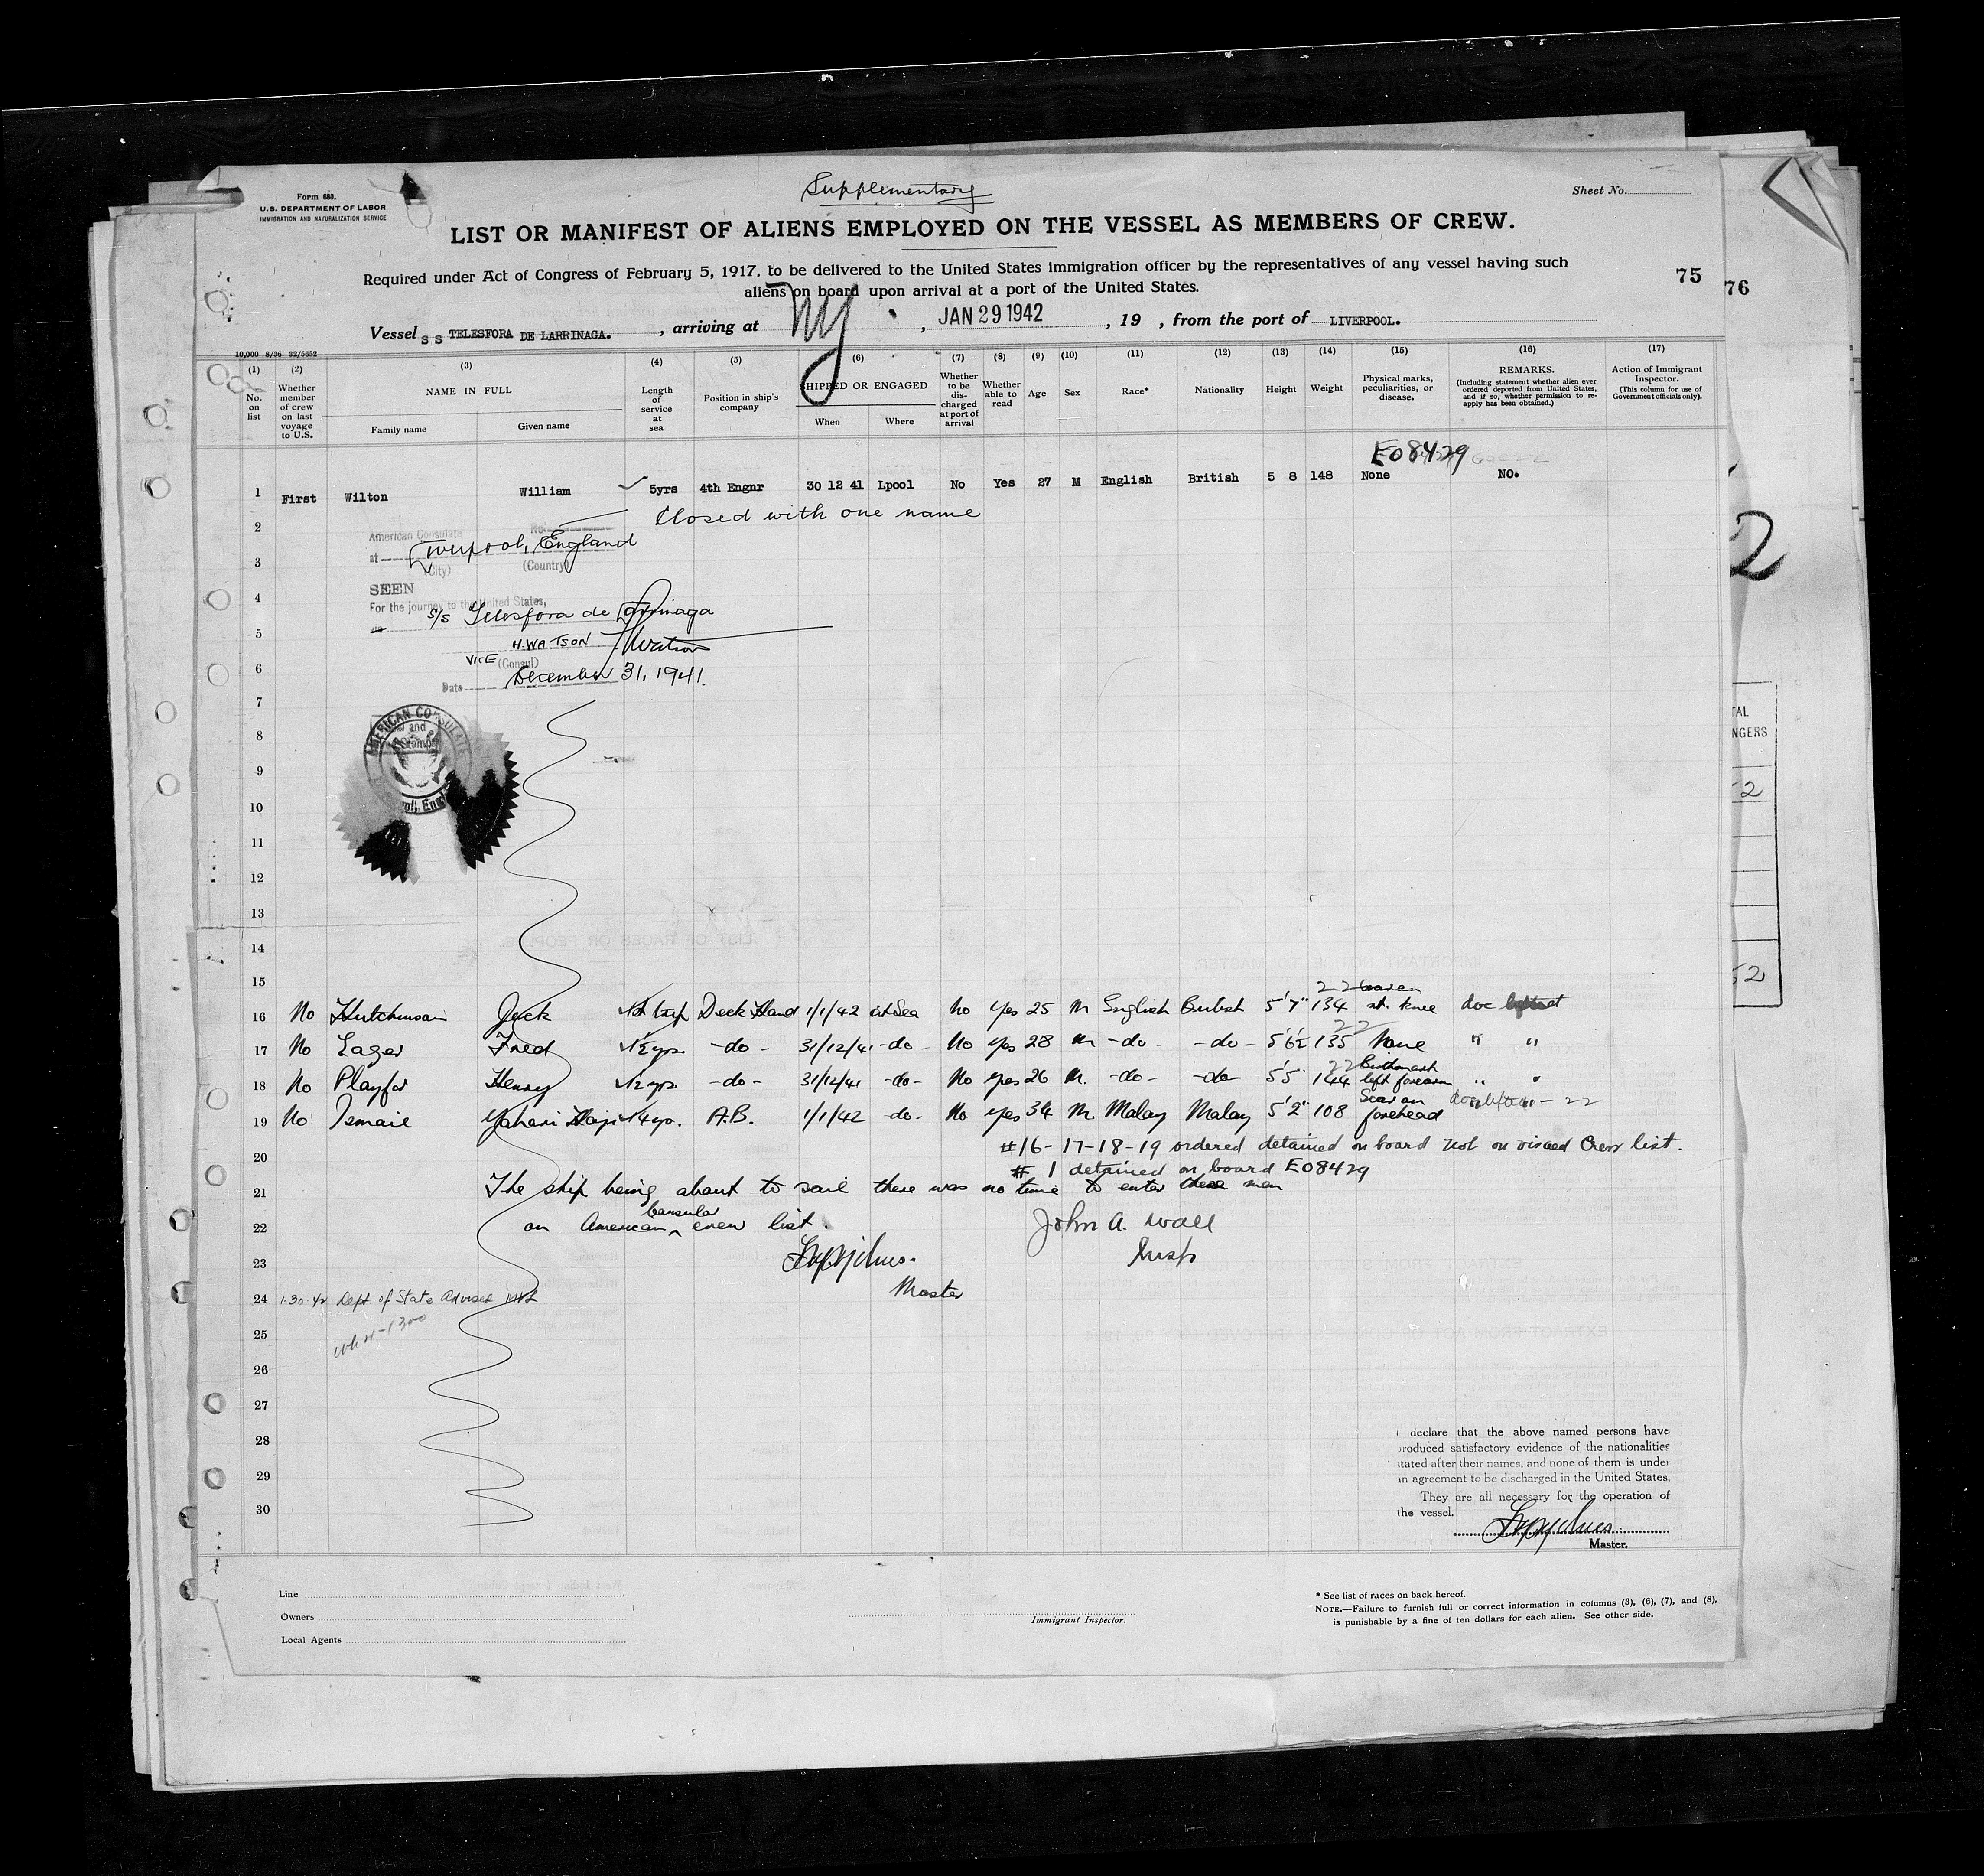 Supplementary
Form 680.
U.S. DEPARTMENT OF LABOR
IMMIGRATION AND NATURALIZATION SERVICE
Sheet No.
LIST OR MANIFEST OF ALIENS EMPLOYED ON THE VESSEL AS MEMBERS OF CREW.
Required under Act of Congress of February 5, 1917, to be delivered to the United States immigration officer by the representatives of any vessel having such
aliens on board upon arrival at a port of the United States.
75
76
Vessel S S TELESFORA DE LARRINAGA. , arriving at NY , JAN 29 1942 , 19 , from the port of LIVERPOOL.
10,000 8/36 32/5652
(1) No. on list
(2) Whether member of crew on last voyage to U.S.
(3) NAME IN FULL
Family name Given name
(4) Length of service at sea
(5) Position in ship's company
(6) SHIPPED OR ENGAGED
When Where
(7) Whether to be discharged at port of arrival
(8) Whether able to read
(9) Age
(10) Sex
(11) Race*
(12) Nationality
(13) Height
(14) Weight
(15) Physical marks, peculiarities, or disease.
(16) REMARKS.
(Including statement whether alien ever ordered deported from United States, and if so, whether permission to reapply has been obtained.)
(17) Action of Immigrant Inspector.
(This column for use of Government officials only).
E08429
1 First Wilton William 5yrs 4th Engnr 30 12 41 Lpool No Yes 27 M English British 5 8 148 None NO.
2 Closed with one name
American Consulate No.
3 at Liverpool, England
(City) (Country)
SEEN
4 For the journey to the United States,
S/S Telesfora de Larrinaga
5 H. WATSON HWatson
6 VICE (Consul)
Date December 31, 1941.
7
8
AMERICAN CONSULATE
9
10
11
12
13
14
15
22 Scar on
16 No Hutchinson Jack 1st trip Deck Hand 1/1/42 at Sea No Yes 25 M English British 5'7" 134 rt. knee doc
22
17 No Lager Fred -do- 31/12/41 -do- No Yes 28 M -do- -do- 135 None " "
22 Birthmark
18 No Playfor Henry 2 yrs -do- 31/12/41 -do- No Yes 26 M. -do- -do- 5'5 144 left forearm " "
Scar on
19 No Ismail 4 yrs. A.B. 1/1/42 -do- No yes 34 M. Malay Malay 5'2" 108 forehead 22
#16-17-18-19 ordered detained on board not on visaed Crew list.
20
# 1 detained on board E08429
21 The ship being about to sail there was no time to enter these men
22 on American Consular crew list.
John A. Wall
23 Insp
Master
24 1-30-42 Dept of State Advised
25
26
27
28
29
30
I declare that the above named persons have
produced satisfactory evidence of the nationalities
stated after their names, and none of them is under
an agreement to be discharged in the United States.
They are all necessary for the operation of
the vessel.
Master.
Line
Owners
Local Agents
Immigrant Inspector.
* See list of races on back hereof.
NOTE.—Failure to furnish full or correct information in columns (3), (6), (7), and (8),
is punishable by a fine of ten dollars for each alien. See other side.
2
TAL
NGERS
52